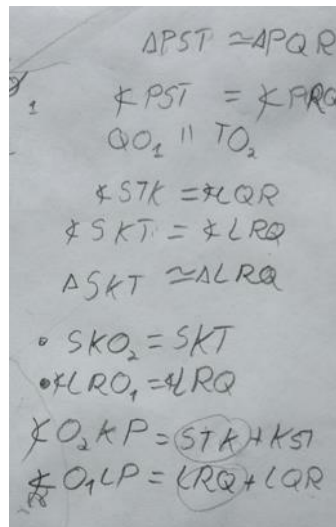 ΔPST ≃ ΔPQR
1
∢PST = ∢PRQ
QO₁ || TO₂
∢STK = ∢LQR
∢SKT = ∢LRQ
ΔSKT ≃ ΔLRQ
• SKO₂ = SKT
• ∢LRO₁ = ∢LRQ
∢O₂KP = STK + KST
∢O₁LP = LRQ + LQR